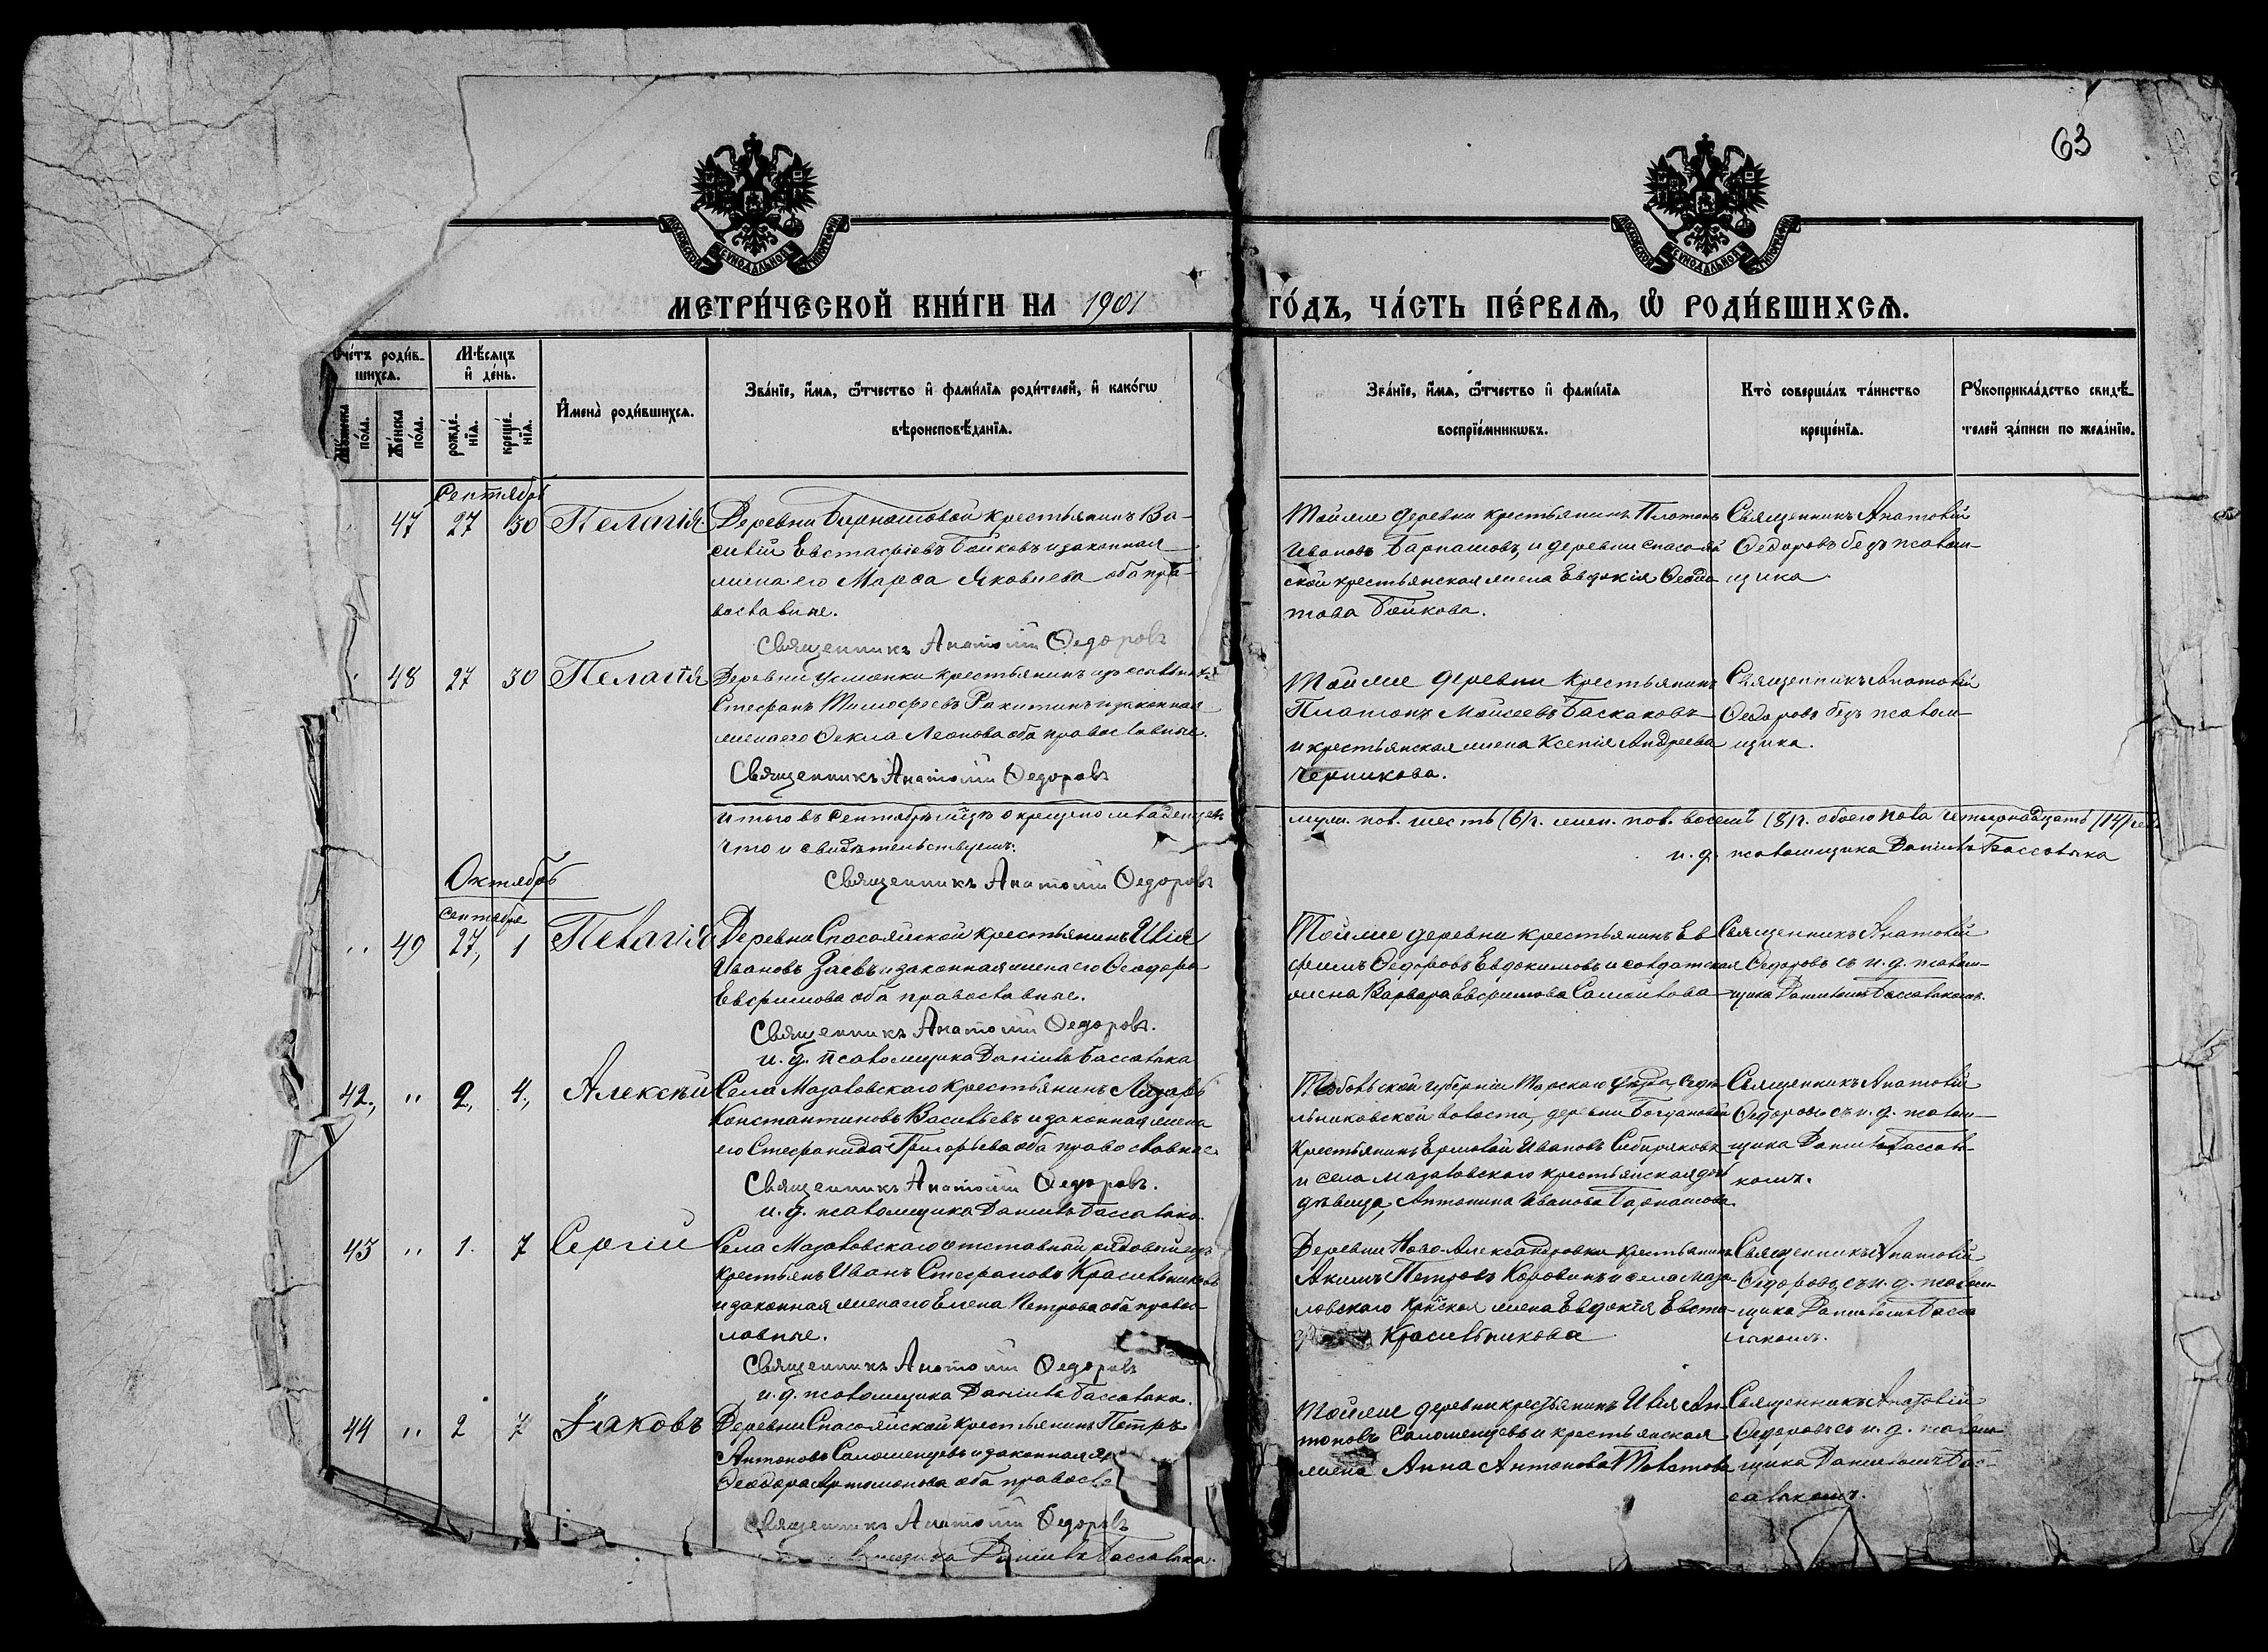 63
МОСКОВСКОЙ СѴНОДАЛЬНОЙ ТИПОГРАФІИ
МОСКОВСКОЙ СѴНОДАЛЬНОЙ ТИПОГРАФІИ
МЕТРИ́ЧЕСКОЙ КНИ́ГИ НА 1901 ГО́ДЪ, ЧА́СТЬ ПЕ́РВАѦ, Ѡ РОДИ́ВШИХСѦ.
Счетъ роди́в-
шихсѧ.
Мꙋ́жеска по́ла.
Же́нска по́ла.
Мѣ́сѧцъ и де́нь.
рожде́-нїѧ.
креще́-нїѧ.
Имена̀ роди́вшихсѧ.
Зва́нїе, и́мѧ, ѻ́тчество и фами́лїѧ роди́телей, и како́гѡ
вѣроисповѣ́данїѧ.
Зва́нїе, и́мѧ, ѻ́тчество и фами́лїѧ
воспрїе́мникѡвъ.
Кто̀ соверша́лъ та́инство
креще́нїѧ.
Рꙋкоприкла́дство свидѣ́-
телей за́писи по жела́нїю.
Сентябрь
47 27 30 Пелагія. Деревни крестьянинъ Ва-
силій Евстафіевъ Бойковъ и законная
жена его Марѳа Яковлева оба пра-
вославные.
Священникъ Анатолій Ѳедоровъ
Тойже деревни крестьянинъ Платонъ
Ивановъ Барнашовъ, и деревни Спасояй
ской крестьянская жена Евдокія
това Бойкова.
Священникъ Анатолій
Ѳедоровъ безъ псалом-
щика
48 27 30 Пелагія Деревни Усманки крестьянинъ изъ ссыльныхъ
Стефанъ Тимофеевъ Ракитинъ и законная
жена его Ѳекла Леонова оба православные.
Священникъ Анатолій Ѳедоровъ
Тойже деревни крестьянинъ
Платонъ Моисеевъ Баскаковъ
и крестьянская жена Ксенія Андреева
Черникова.
Священникъ Анатолій
Ѳедоровъ безъ псалом-
щика.
Итого въ Сентябрѣ м-цѣ окрещено младенцевъ муж. пол. шесть (6), жен. пол. восемь (8), обоего пола четырнадцать (14)
Что и свидѣтельствуемъ.
Священникъ Анатолій Ѳедоровъ
и. д. псаломщика Даніилъ Бассалыка
Октябрь
сентября
" 49 27, 1 Пелагія Деревни Спасояйской крестьянинъ Илія
Ивановъ Заевъ и законная жена его Ѳеодора
Евфимова оба православные.
Священникъ Анатолій Ѳедоровъ.
и. д. псаломщика Даніилъ Бассалыка
Тойже деревни крестьянинъ Ев
фимъ Ѳедоровъ Евдокимовъ и солдатская
жена Варвара Евфимова Самойлова
Священникъ Анатолій
Ѳедоровъ съ и. д. псалом-
щика Даніиломъ Бассалыкомъ.
42., " 2, 4., Алексѣй Села Мазаловскаго крестьянинъ Лазарь
Константиновъ Васильевъ и законная жена
его Стефанида Григорьева оба православные
Священникъ Анатолій Ѳедоровъ.
и. д. псаломщика Даніилъ Бассалыка.
Тобольской губерніи Тарскаго уѣзда, Сѣдѣ
льниковской волости, деревни Богдановки
Крестьянинъ Ермолай Ивановъ Сибиряковъ
и села Мазаловскаго крестьянская дѣ
дѣвица, Антонина Иванова Барнашова.
Священникъ Анатолій
Ѳедоровъ съ и. д. псалом-
щика Даніиломъ Бассалы-
комъ.
43 " 1. 7 Сергій Села Мазаловскаго отставной рядовой изъ
крестьянъ Иванъ Стефановъ Красильниковъ
и законная жена его Елена Петрова оба правос-
лавные.
Священникъ Анатолій Ѳедоровъ
и. д. псаломщика Даніилъ Бассалыка.
Деревни Ново-Александровки крестьянинъ
Акимъ Петровъ Коровинъ и села Маза-
ловскаго жена Евдокія Евста-
Красильникова
Священникъ Анатолій
Ѳедоровъ съ и. д. псалом-
щика Даніиломъ Басса
лыкомъ.
44 " 2 7 Іаковъ Деревни Спасояйской крестьянинъ Петръ
Антоновъ Саломенцевъ и законная
Ѳеодора Артамонова оба правосл
Священникъ Анатолій Ѳедоровъ
Даніилъ Бассалыка.
Тойже деревни крестьянинъ Илія Ан
тоновъ Саломенцевъ и крестьянская
жена Анна Антонова Толстова
Священникъ Анатолій
Ѳедоровъ съ и. д. псалом
щика Даніиломъ Бас-
салыкомъ.